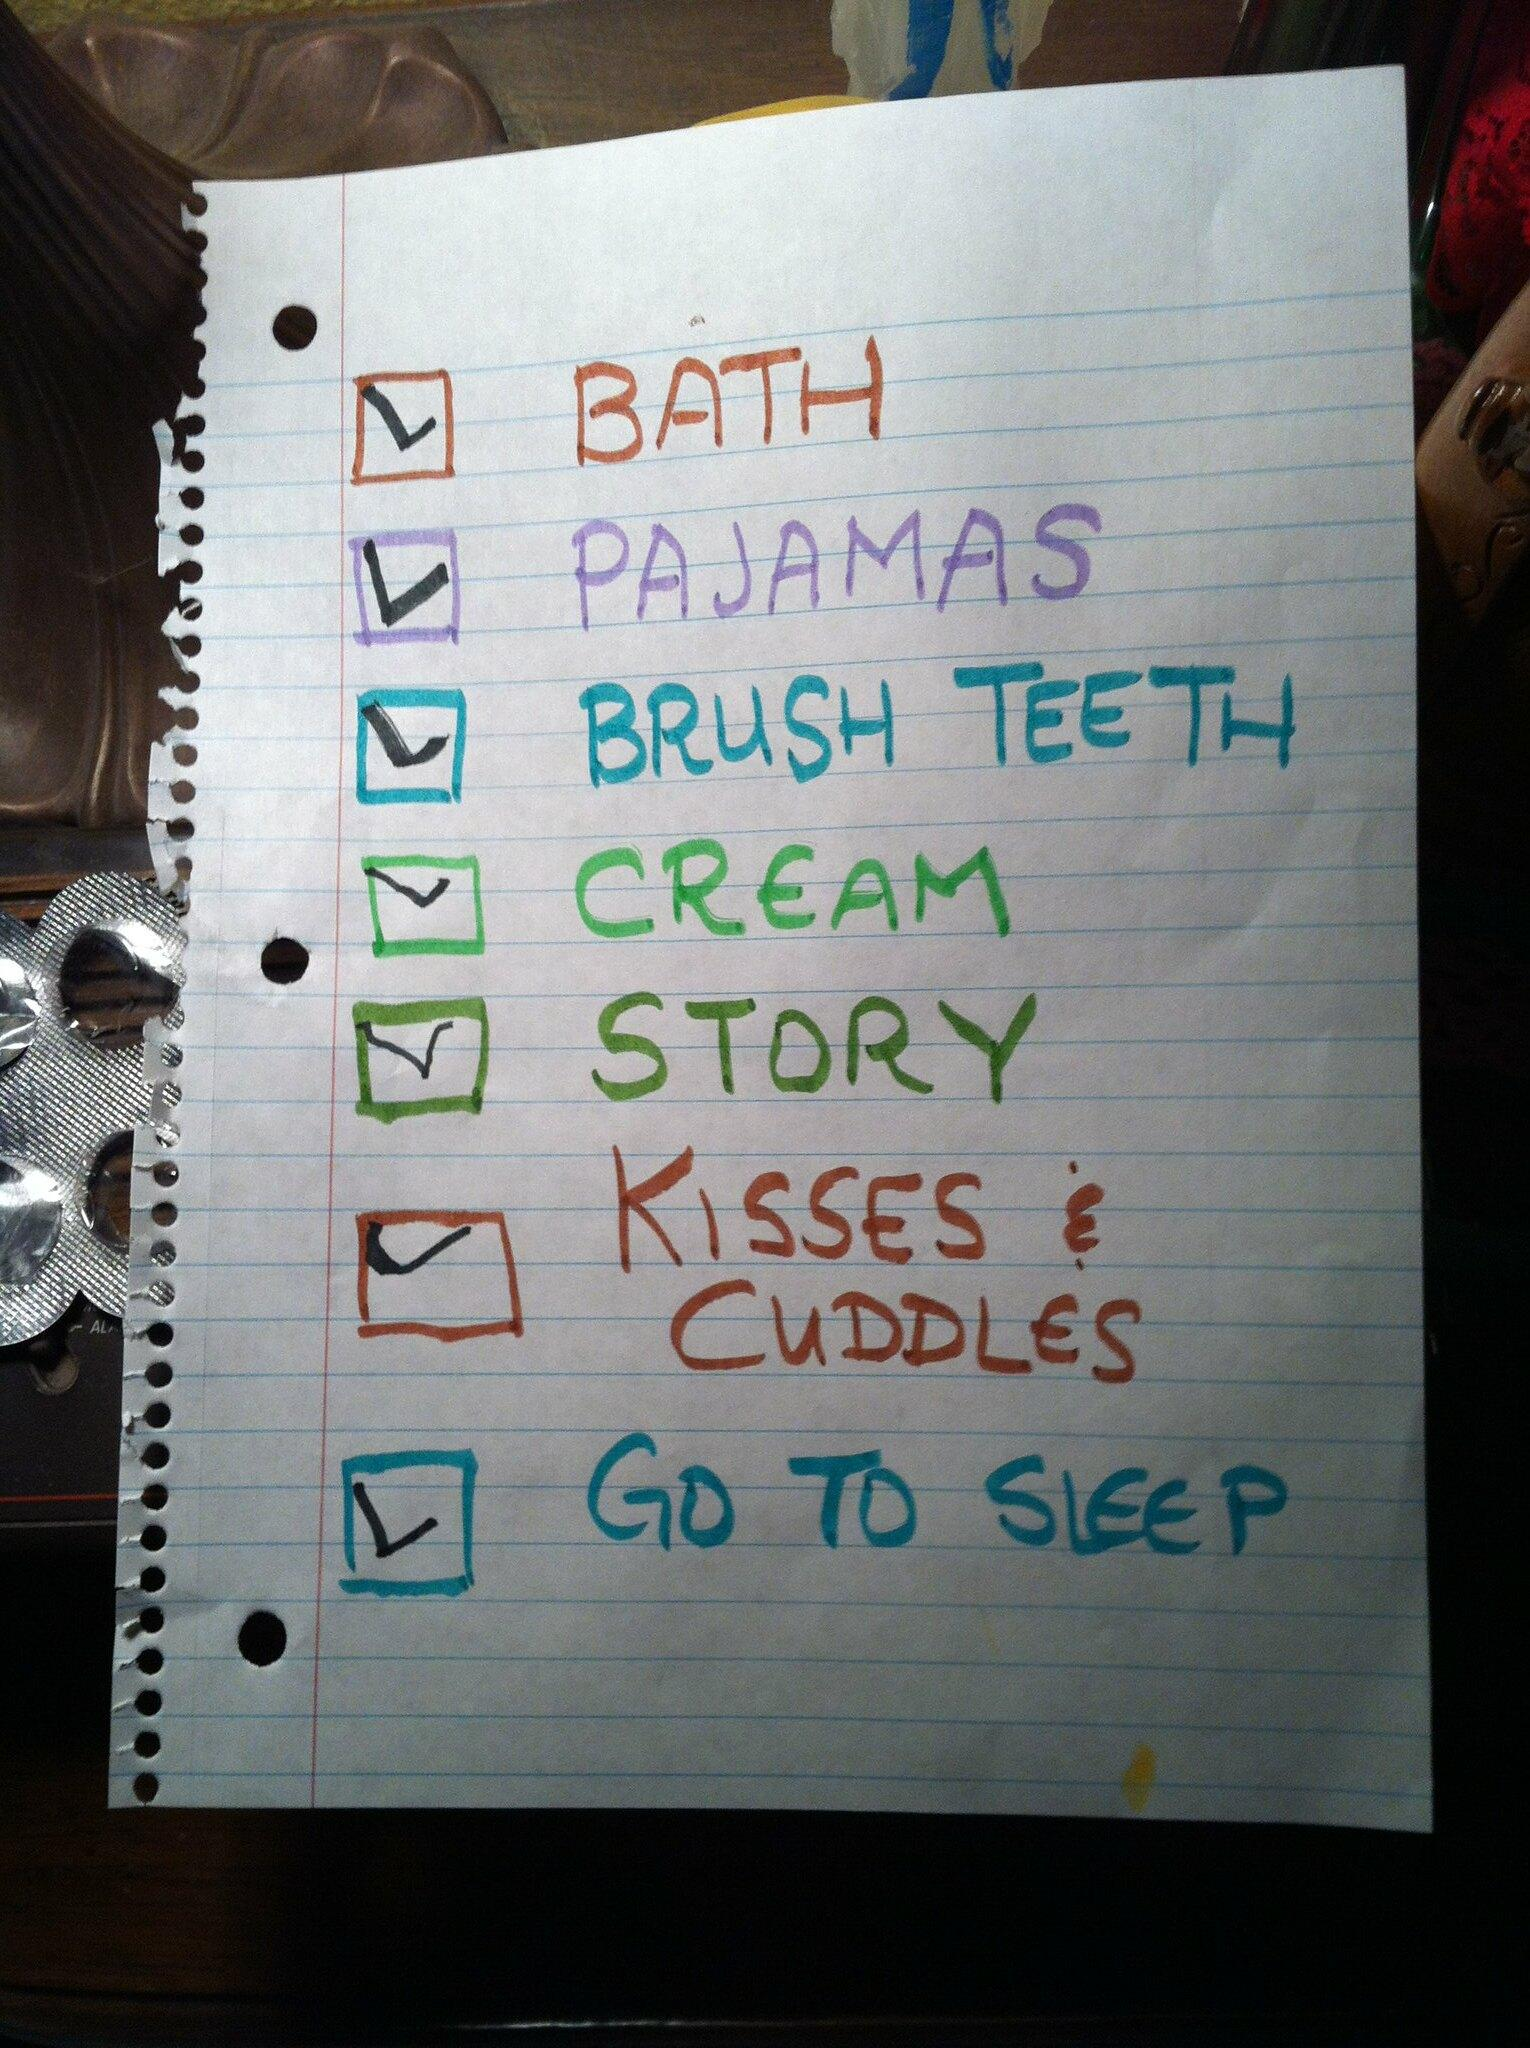 BATH
PAJAMAS
BRUSH TEETH
CREAM
STORY
KISSES &
CUDDLES
GO TO SLEEP